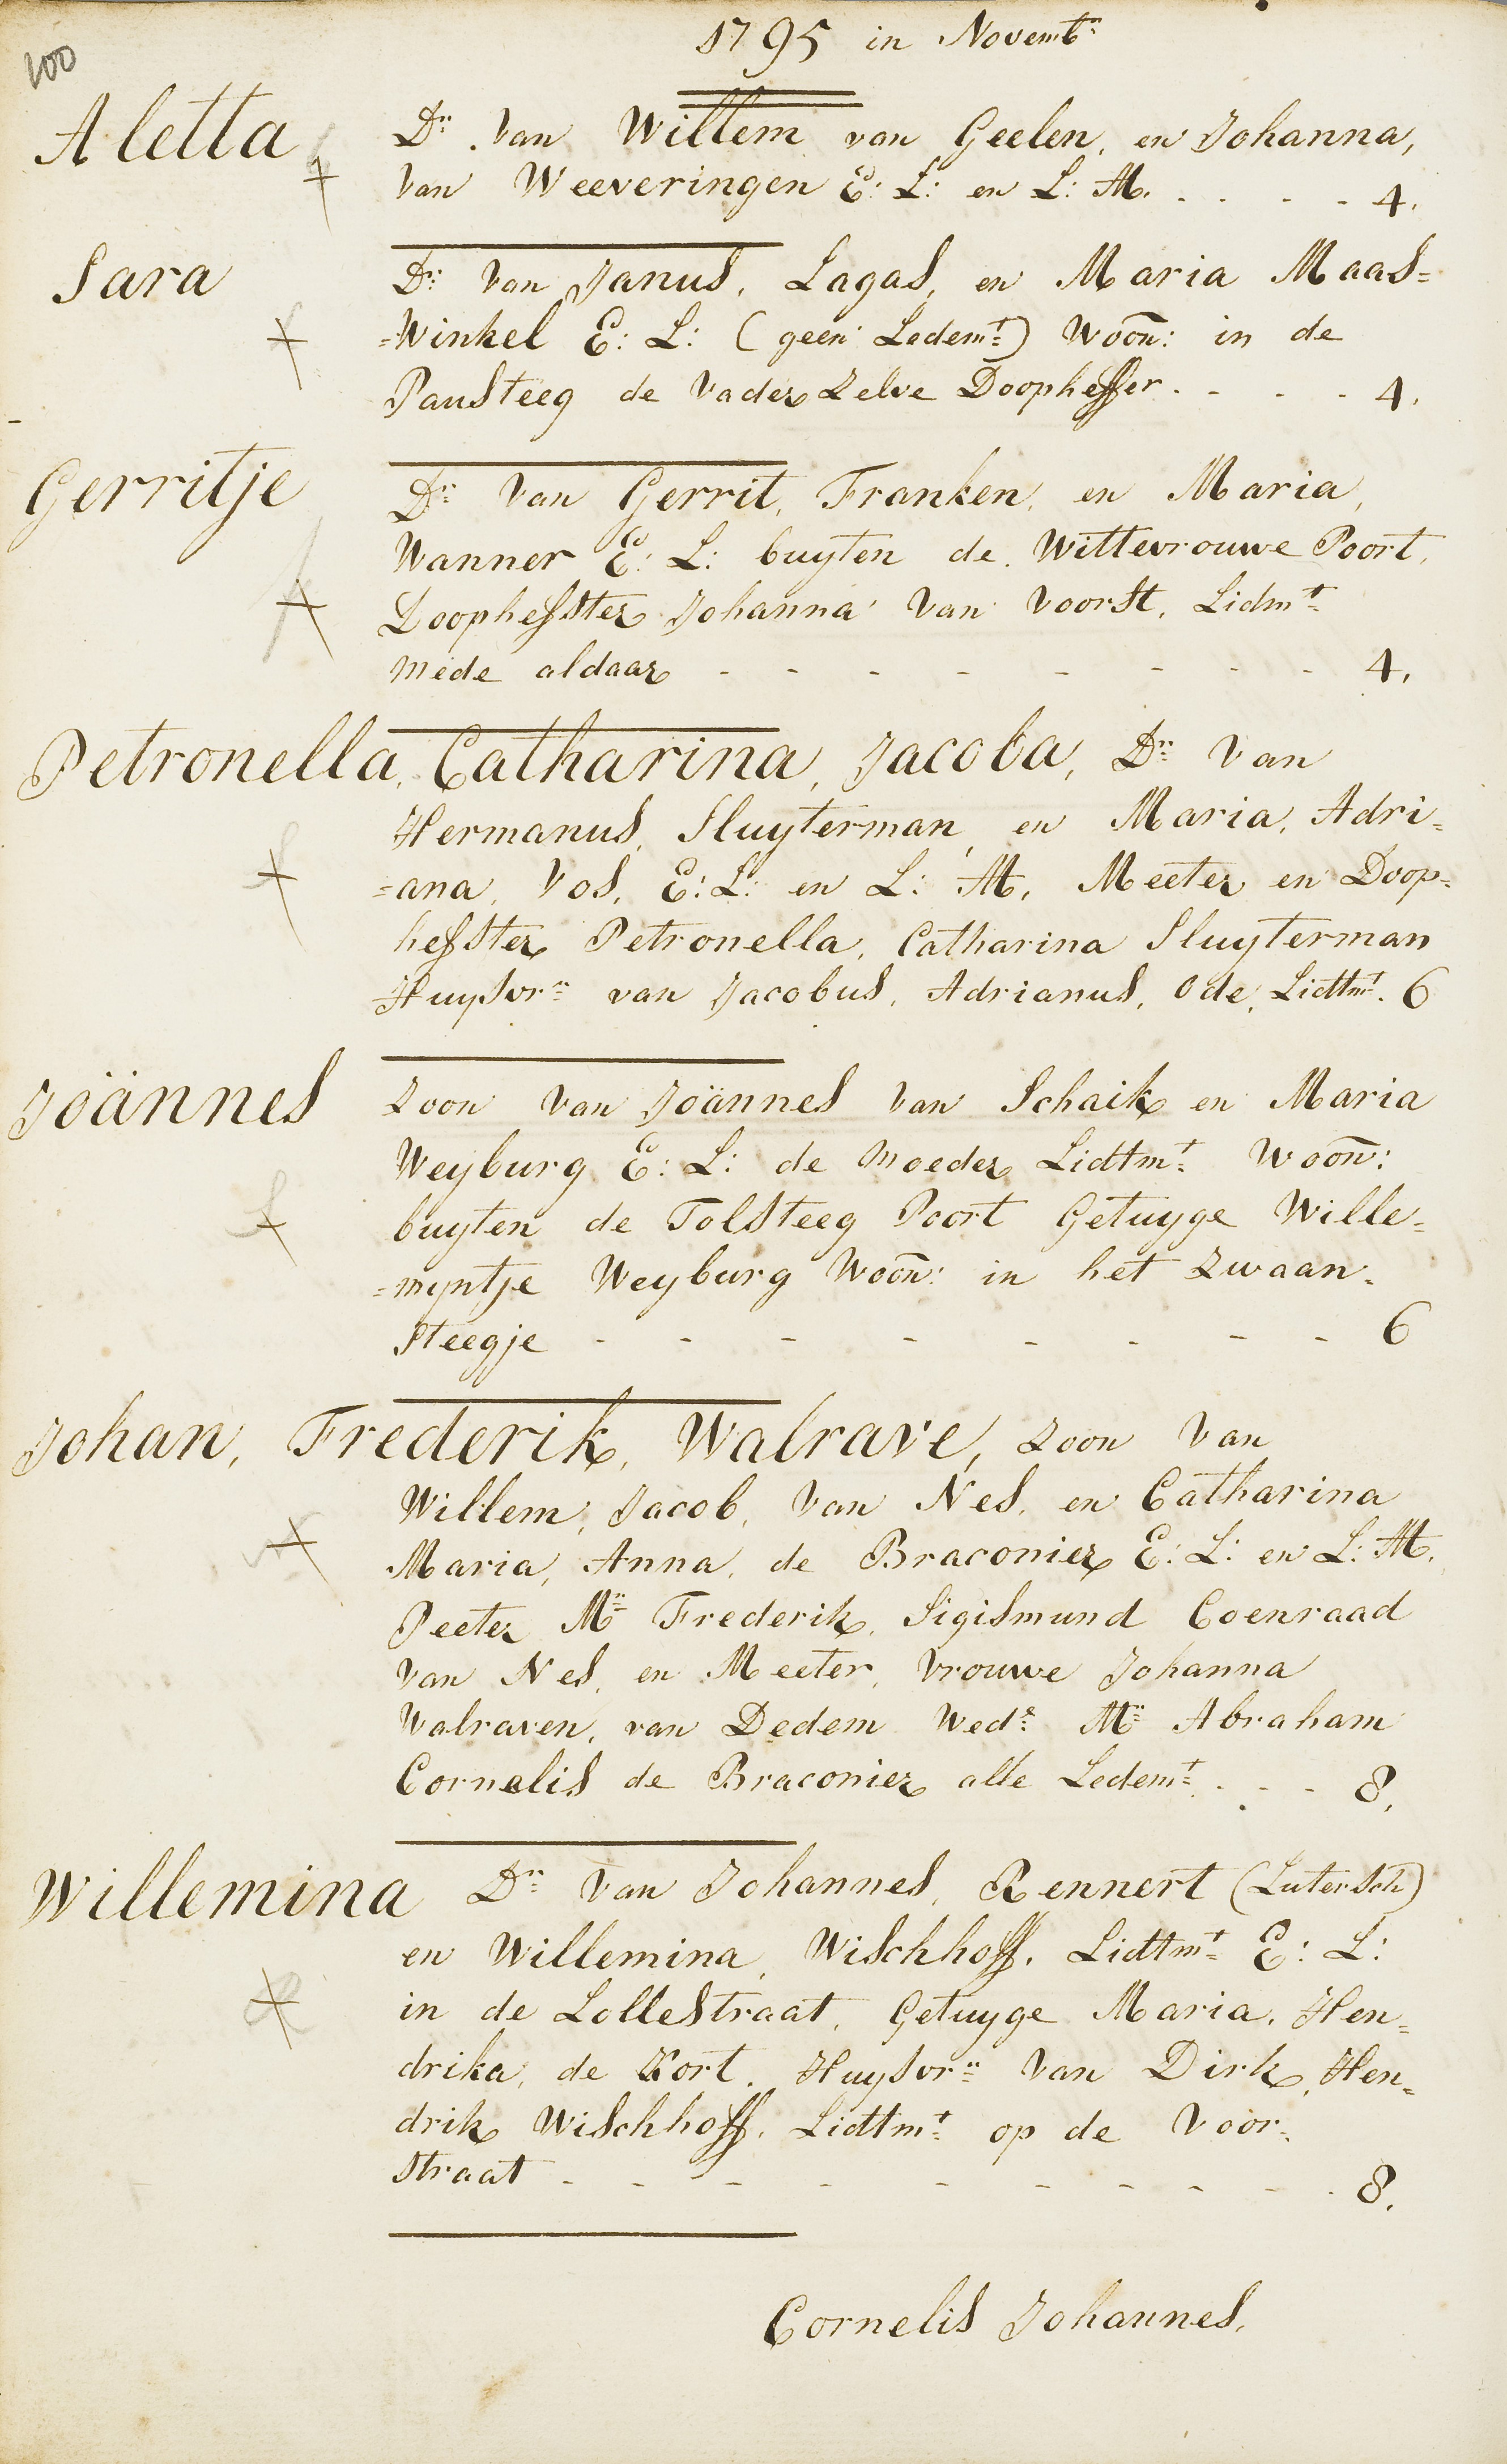 100
1795 in Novemb:r
Aletta Dr: van Willem van Geelen, en Johanna,
van Weeveringen E: L: en L: M. . . . - 4.
Sara Dr: van Janus, Lagas, en Maria Maas=
=Winkel E: L: (geen Ledemt:) Woon: in de
Pausteeg de vader zelve Doopheffer . - . - 4.
Gerritje Dr: van Gerrit, Franken, en Maria,
Wanner E: L: buyten de Wittevrouwe Poort,
Doophefster Johanna van Voorst, Lidmt:
mede aldaar - - - - - - - - 4.
Petronella, Catharina, Jacoba, Dr: van
Hermanus, Sluyterman, en Maria, Adri=
=ana, Vos, E: L: en L: M, Meeter en Doop=
hefster Petronella, Catharina Sluyterman
Huysvr: van Jacobus, Adrianus, Ode, Lidtmt. 6
Joännes Zoon van Joännes van Schaik en Maria
Weyburg E: L: de Moeder Lidtmt: Woon:
buyten de Tolsteeg Poort Getuyge Wille=
=myntje Weyburg Woon: in het Zwaan=
steegje - - - - - - - - 6
Johan, Frederik, Walrave, Zoon van
Willem, Jacob, van Nes, en Catharina
Maria, Anna, de Braconier E: L: en L: M,
Peeter Mr: Frederik, Sigismund Coenraad
van Nes, en Meeter, Vrouwe Johanna
Walraven, van Dedem Wede: Mr: Abraham
Cornelis de Braconier alle Ledemt: . - - 8.
Willemina Dr: van Johannes, Rennert (Lutersch)
en Willemina, Wischhoff, Lidtmt: E: L:
in de Lollestraat, Getuyge Maria, Hen=
drika, de Kort. Huysvr: van Dirk, Hen=
drik Wischhoff, Lidtmt: op de Voor=
straat - - - - - - - - - - 8.
Cornelis Johannes,